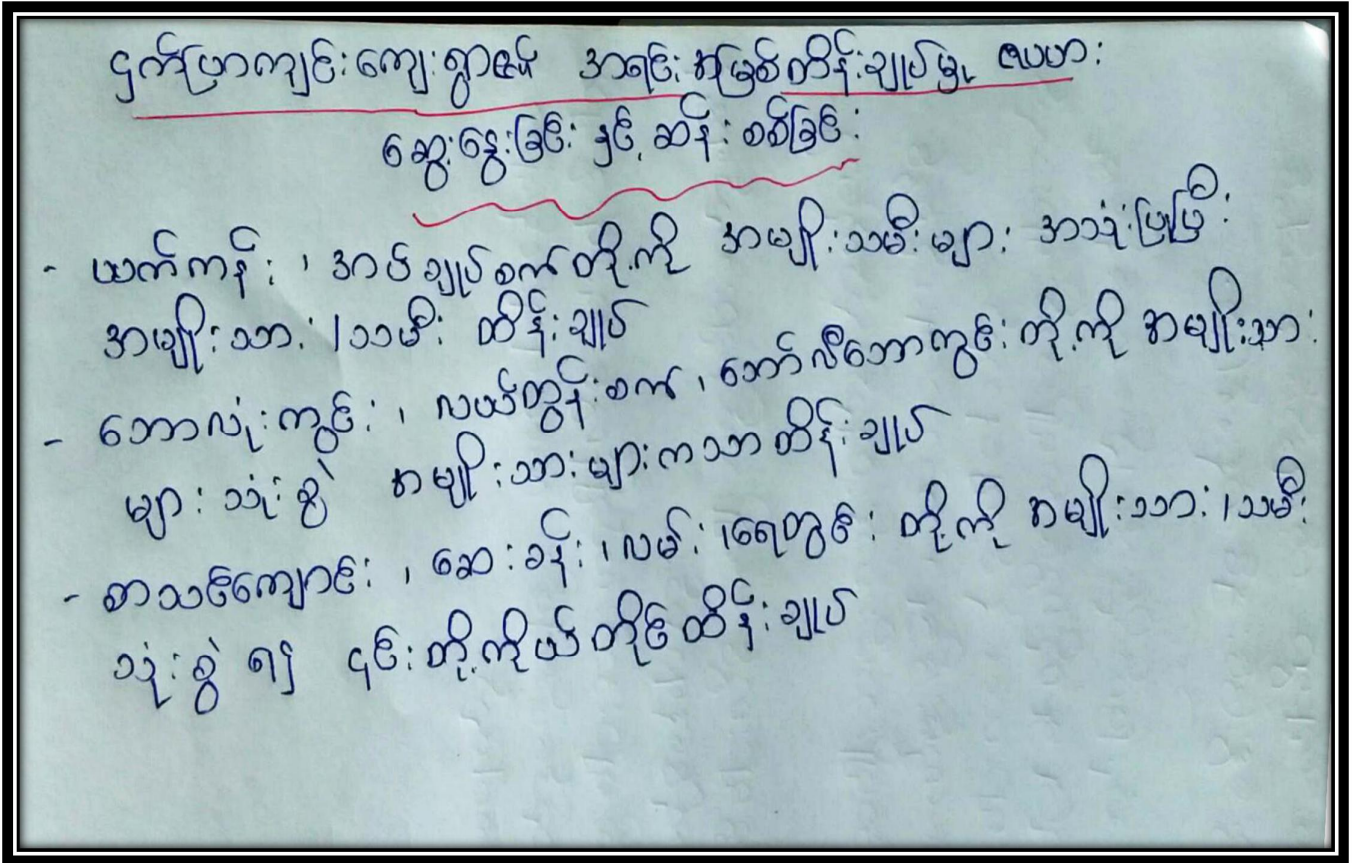 ငှက်ပြာကျင်းကျေးရွာ၏ အရင်းအမြစ်ထိန်းချုပ်မှု ဇယား
ဆွေးနွေးခြင်း နှင့် ဆန်းစစ်ခြင်း
- ယက်ကန်း ၊ အပ်ချုပ်စက်တို့ကို အမျိုးသမီးများ အသုံးပြုပြီး
အမျိုးသား / သမီး ထိန်းချုပ်
- ဘောလုံးကွင်း ၊ လယ်ထွန်းစက် ၊ ဘော်လီဘောကွင်း တို့ကို အမျိုးသား
များ သုံးစွဲ အမျိုးသားများကသာ ထိန်းချုပ်
- စာသင်ကျောင်း ၊ ဆေးခန်း ၊ လမ်း ၊ ရေတွင်း တို့ကို အမျိုးသား / သမီး
သုံးစွဲ ၍ ၎င်းတို့ကိုယ်တိုင်ထိန်းချုပ်